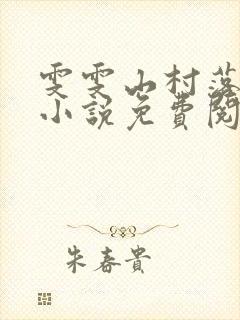 雯雯山村落
小説免費閱
朱春貴